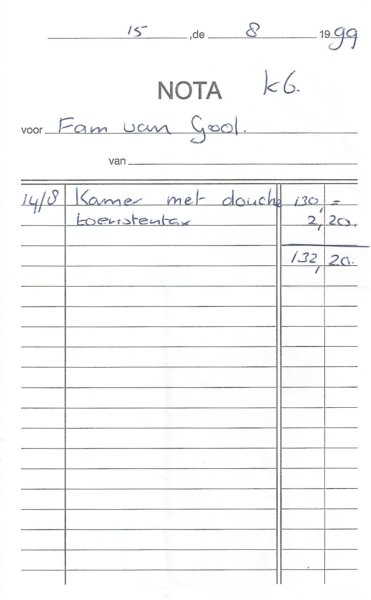 15 ,de 8 1999
NOTA K6.
voor Fam van Gool.
van
14/8 Kamer met douche 130, =
toeristentax 2, 20.
132, 20.